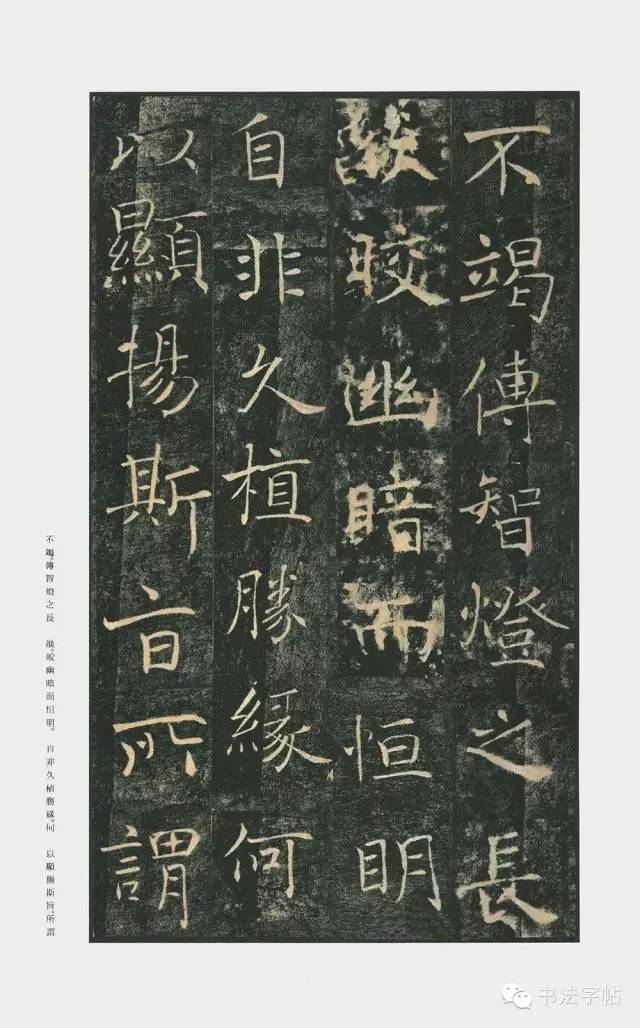 不竭傳智燈之長
燄皎幽暗而恒明
自非久植勝緣何
以顯揚斯旨所謂
不竭。傳智燈之長 燄。皎幽暗而恒明。 自非久植勝緣。何 以顯揚斯旨。所謂
书法字帖